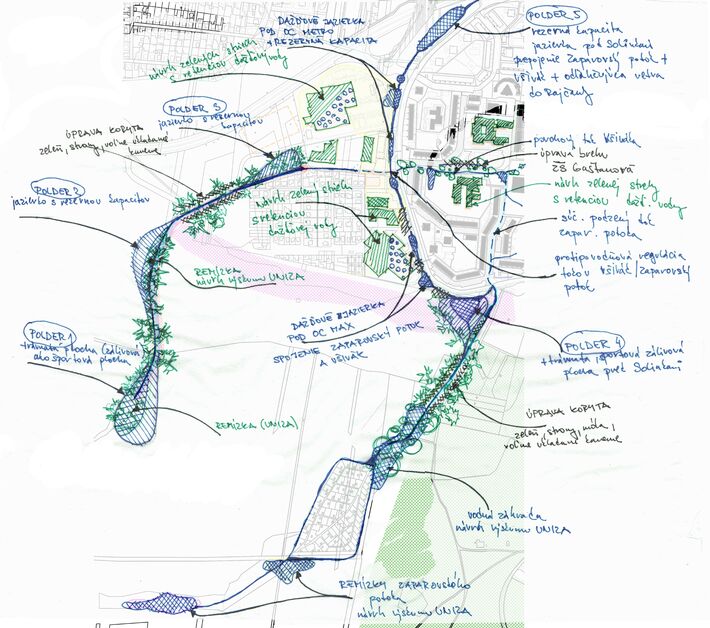 DAŽĎOVÉ JAZIERKA
POD OC METRO
+ REZERVNÁ KAPACITA
POLDER 5
rezervná kapacita
jazierka pod Solinkami
prepojenie Zaparovský potok +
Všivák + odľahčujúca vetva
do Rajčanky
návrh zelených striech
s retenciou dažďovej vody
POLDER 3
jazierko s rezervnou
kapacitou
ÚPRAVA KORYTA
zeleň, stromy, voľne ukladané
kamene
POLDER 2
jazierko s rezervnou kapacitou
povrchový tok Všiváka
úprava brehu
ZŠ Gaštanová
návrh zelenej strechy
s retenciou dažď. vody
súč. podzemný tok
Zapar. potoka
protipovodňová regulácia
toku Všivák/Zaparovský
potok
návrh zelených striech
s retenciou
dažďovej vody
REMÍZKA
návrh výskumu UNIZA
DAŽĎOVÉ JAZIERKA
POD OC MAX
SPOJENIE ZAPAROVSKÝ POTOK
A VŠIVÁK
POLDER 1
trávnatá plocha (zálivová
ako športová plocha
POLDER 4
+ trávnatá športová zálivová
plocha pred Solinkami
REMÍZKA (UNIZA)
ÚPRAVA KORYTA
zeleň, stromy,
voľne ukladané kamene
vodná zádrž
návrh výskumu UNIZA
REMÍZKY ZAPAROVSKÉHO
potoka
návrh výskumu UNIZA